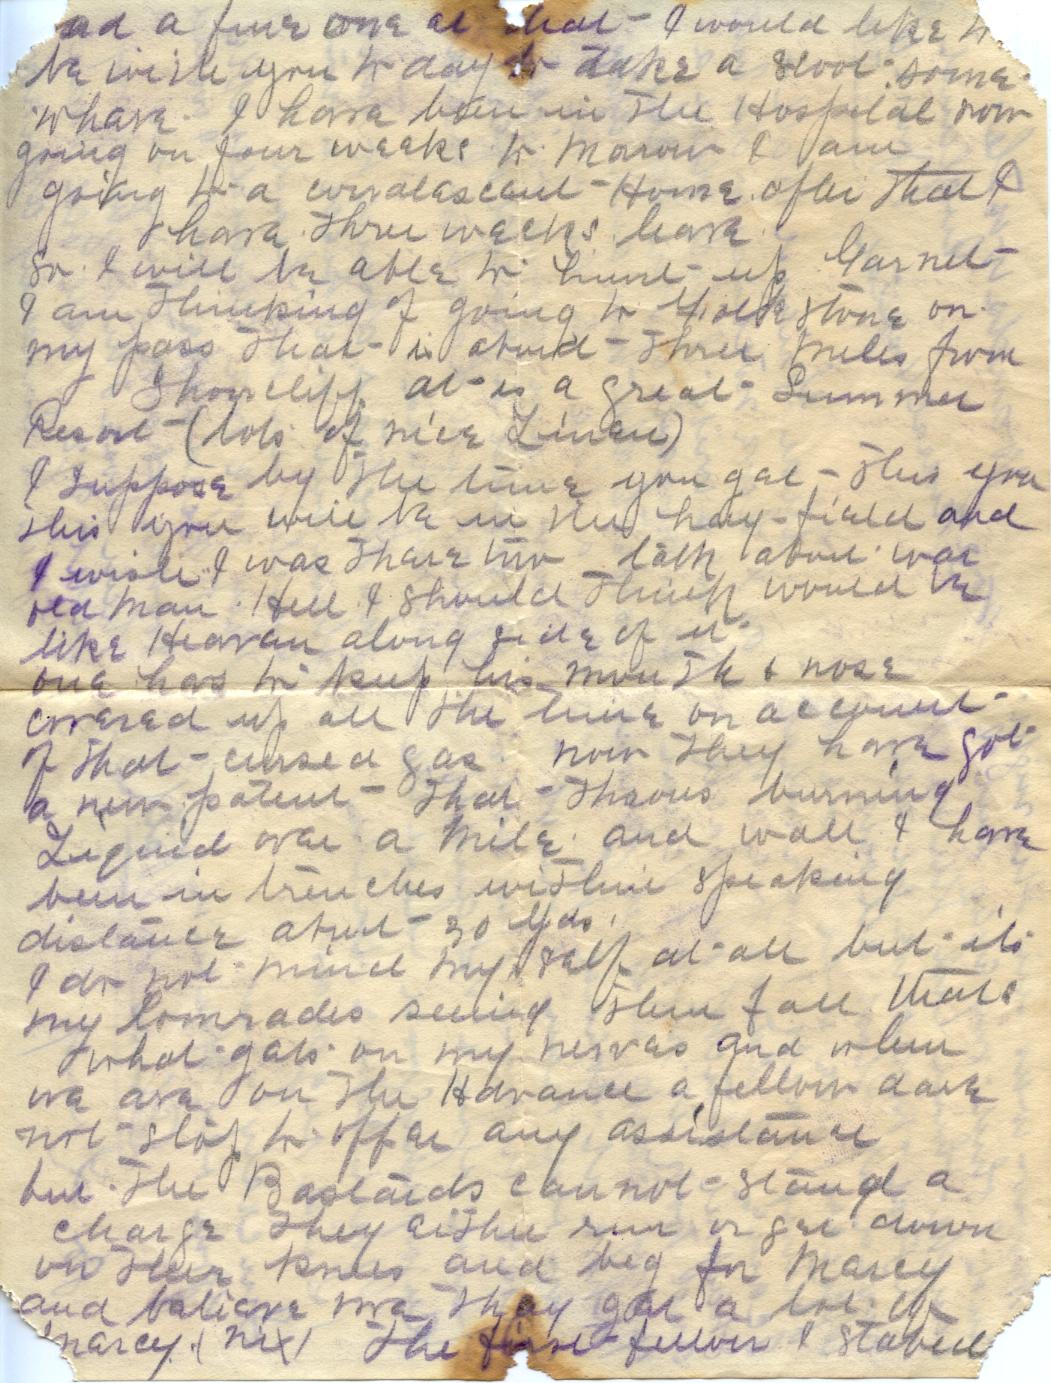 ad a fine one at that - I would like to
be with you to day to take a stool some-
whare. I have been in the Hospital now
going on four weeks to Morow I am
going to a convalescent - Home after that I
have three weeks leave.
So I will be able to hunt - up Garnet -
I am thinking of going to Folkstone on
my pass that - is about - three miles from
Shorncliff at - is a great - Summer
Resort - (lots of nice Linen)
I suppose by the time you get - this you
this you will be in the hay - field and
I wish I was thare too talk about war
old man. Hell I should think would be
like Heaven along side of it -
one has to keep his mouth & nose
covered up all the time on account -
of that - cursed gas now they have got
a new patent - that - throws burning
Liquid over a Mile. and wall I have
been in trenches within speaking
distance about - 30 Yds.
I do not - mind my self at - all but - its
my Comrades seeing them fall thats
what - gats on my nerves and when
we are on the Advance a fellow dare
not - stop to offer any assistance
but - the Bastards cannot - stand a
charge they either run or get down
on their knees and beg for Marcy
and believe me they get a lot of
marcy (nix) The first - fellow I stabed